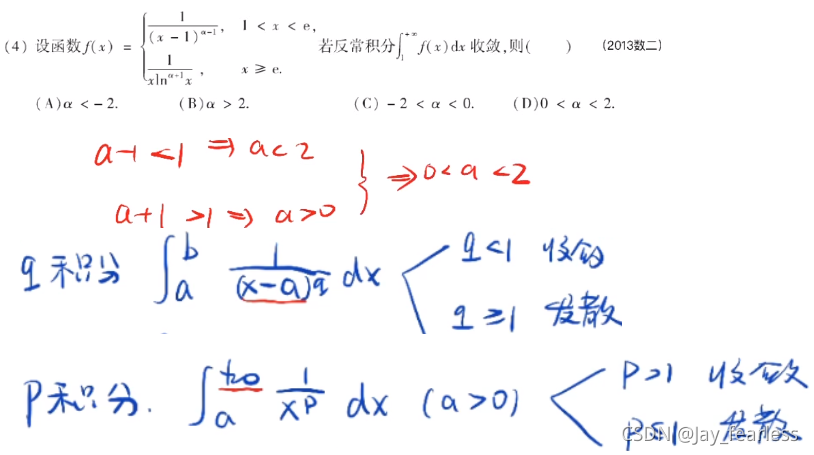 (4) 设函数 f(x) = { 1/(x-1)^{α-1}, 1 < x < e, 1/(xln^{α+1}x), x ≥ e. 若反常积分∫_1^{+∞} f(x)dx 收敛,则( ) (2013数二)
(A)α < -2. (B)α > 2. (C) -2 < α < 0. (D)0 < α < 2.
a-1 < 1 ⇒ a < 2
a+1 > 1 ⇒ a > 0 } ⇒ 0 < a < 2
q积分 ∫_a^b 1/(x-a)^q dx q<1 收敛
q≥1 发散
P积分. ∫_a^{+∞} 1/x^P dx (a>0) P>1 收敛
P≤1 发散
CSDN @Jay_fearless